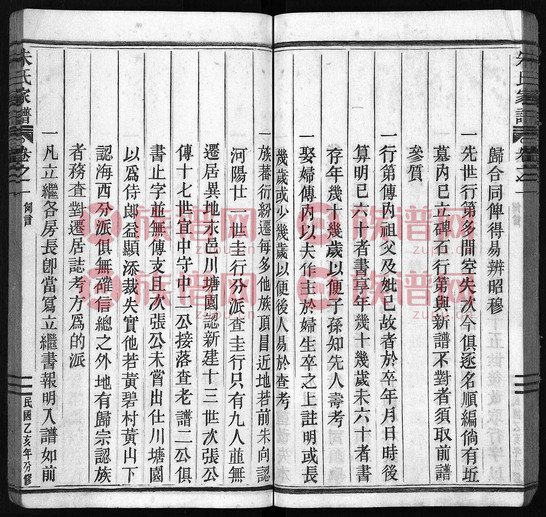 朱氏家譜
卷之一
例言
歸合同俾得易辨昭穆
一先世行第多間空失次今俱逐名順編倘有坵
墓內已立碑石行第與新譜不對者須取前譜
參質
一行第傳內祖父及妣已故者於卒年月日時後
算明已六十者書享年幾十幾歲未六十者書
存年幾十幾歲以便子孫知先人壽考
一娶婦傳內以夫作主於婦生卒之上註明或長
幾歲或少幾歲以便後人易於查考
一族蕃衍紛遷每多他族頂冒近地若前朱向認
河陽廿一世圭行分派查圭行只有九人並無
遷居異地朱邑川塘園認新建十三世次張公
傳十七世宜中守中二公接落查老譜二公俱
書止字並無傳支且次張公未嘗出仕川塘園
以為侍郎益顯添裁失實他若黃碧村黃山下
認海西分派俱無確信總之外地有歸宗認族
者務查對遷居誌考方為的派
一凡立繼各房長即當寫立繼書報明入譜如前
朱氏家譜
卷之一
例言
民國乙亥年份修
族谱网
zupu.cn
族谱网
zupu.cn
族谱网
zupu.cn
族谱网
zupu.cn